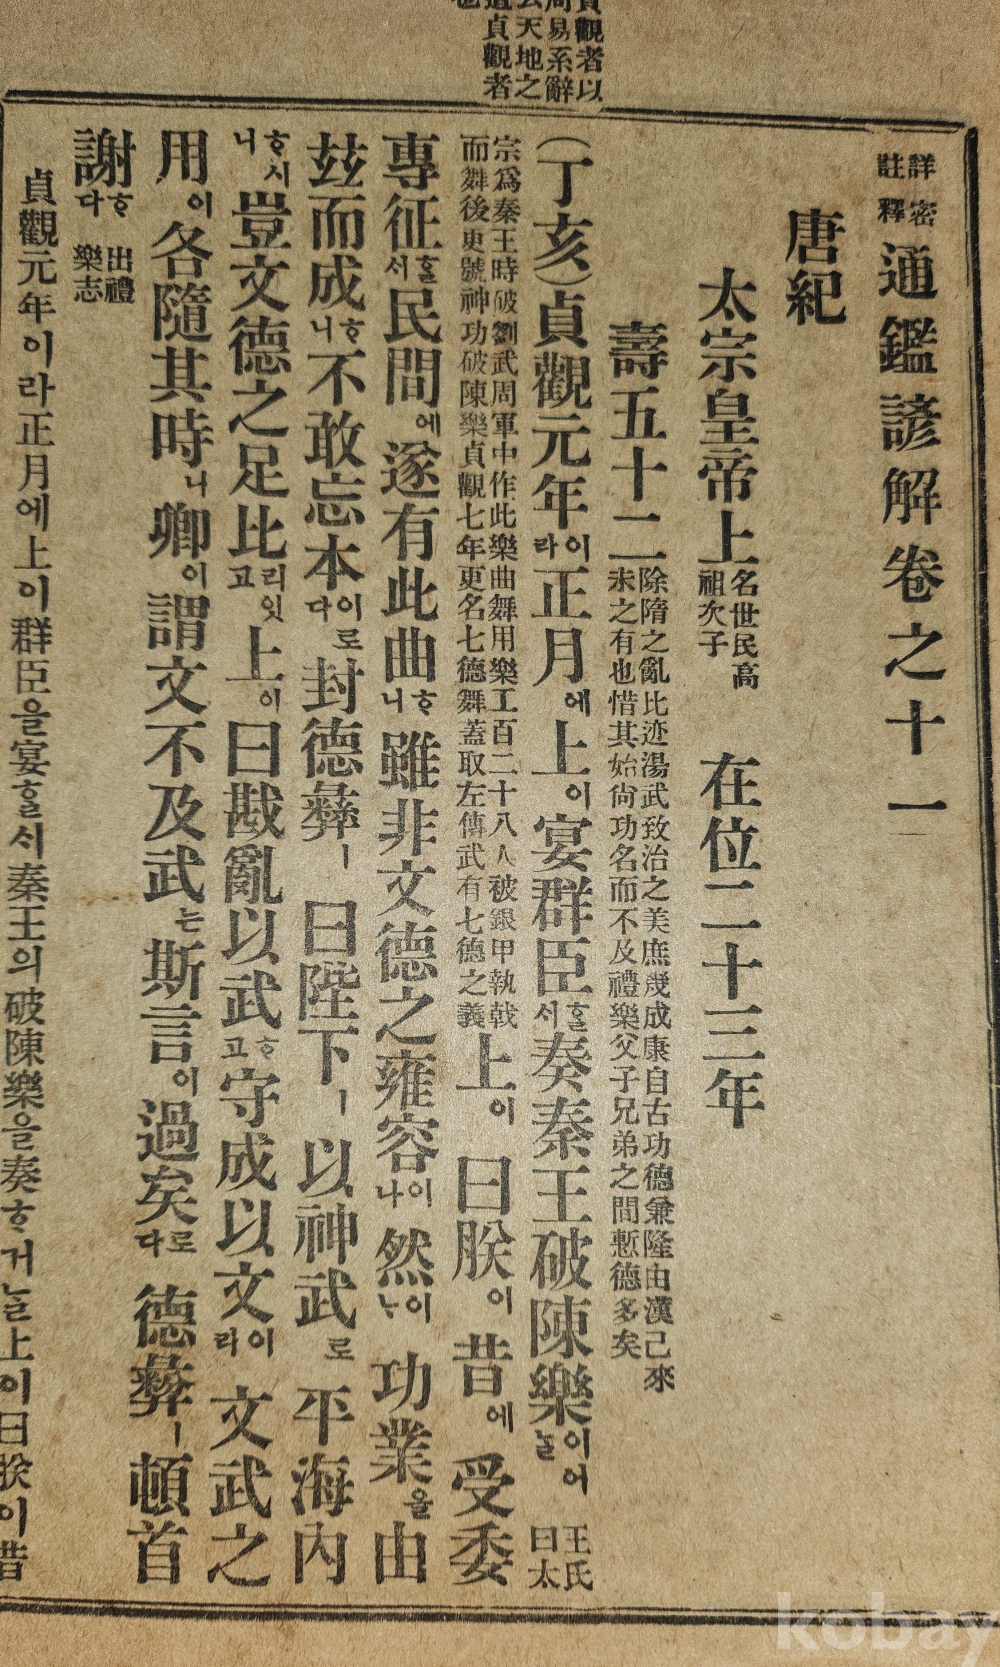 貞觀者以
周易系辭
云天地之
道貞觀者
也
詳密
註釋
通鑑諺解卷之十一
唐紀
太宗皇帝上
名世民高
祖次子
在位二十三年
壽五十二
除隋之亂比迹湯武致治之美庶幾成康自古功德兼隆由漢己來
未之有也惜其始尙功名而不及禮樂父子兄弟之間慙德多矣
(丁亥)貞觀元年이라正月에上이宴群臣ᄒᆞᆯ서奏秦王破陳樂이어ᄂᆞᆯ
王氏
曰太
宗爲秦王時破劉武周軍中作此樂曲舞用樂工百二十八人被銀甲執戟
而舞後更號神功破陳樂貞觀七年更名七德舞蓋取左傳武有七德之義
上이曰朕이昔에受委
專征ᄒᆞᆯ서民間에遂有此曲ᄒᆞ니雖非文德之雍容이나然이ᄂᆞ功業을由
玆而成ᄒᆞ니不敢忘本이로다封德彝ㅣ曰陛下ㅣ以神武로平海內
ᄒᆞ시니豈文德之足比리잇고上이曰戡亂以武ᄒᆞ고守成以文이라文武之
用이各隨其時니卿이謂文不及武는斯言이過矣로다德彝ㅣ頓首
謝ᄒᆞ다
出禮
樂志
貞觀元年이라正月에上이群臣을宴ᄒᆞᆯᄉᆡ秦王의破陳樂을奏ᄒᆞ거ᄂᆞᆯ上이曰朕이昔
kobay